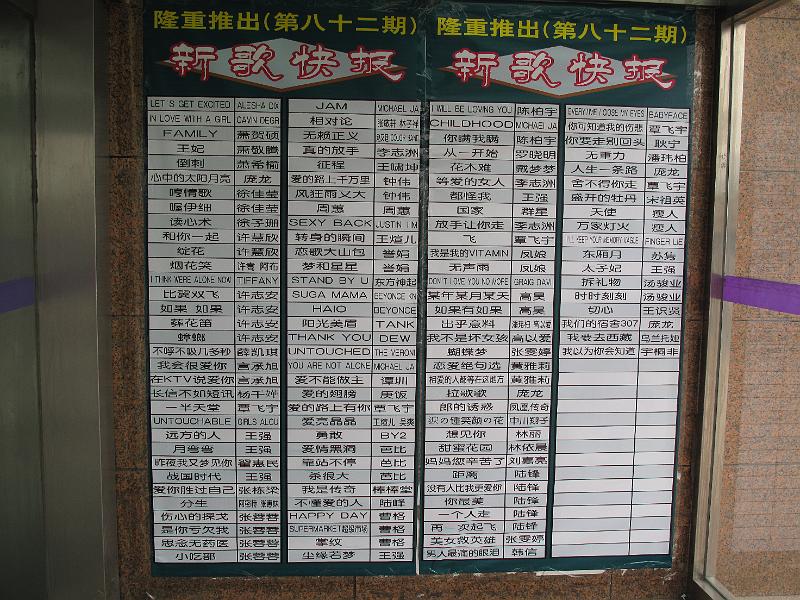 隆重推出(第八十二期)
新歌快报
LET'S GET EXCITED ALESHA DIX
IN LOVE WITH A GIRL GAVIN DEGR
FAMILY 萧贺硕
王妃 萧敬腾
倒刺 萧希榆
心中的太阳月亮 庞龙
嘮情歌 徐佳莹
喔伊细 徐佳莹
读心术 徐子珊
和你一起 许慧欣
绽花 许慧欣
烟花笑 许嵩
I THINK WERE ALONE NOW TIFFANY
比翼双飞 许志安
如果 如果 许志安
葵花笛 许志安
蟑螂 许志安
不呼不吸几多秒 薛凯琪
我会很爱你 言承旭
在KTV说爱你 言承旭
长信不如短讯 杨千嬅
一半天堂 覃飞宇
UNTOUCHABLE GIRLS ALCU
远方的人 王强
月弯弯 王强
昨夜我又梦见你 翟惠民
战国时代 王强
爱你胜过自己 张栋梁
分生
伤心的探戈 张蓉蓉
是你亏欠我 张蓉蓉
思念无药医 张蓉蓉
小吃部 张蓉蓉
JAM MICHAEL JA
相对论
无赖正义
真的放手 李志洲
征程 王啸坤
爱的路上千万里 钟伟
风狂雨又大 钟伟
周蕙 周蕙
SEXY BACK JUSTIN TIM
转身的瞬间 王煊儿
恋歌大山包 誉娟
梦和星星 誉娟
STAND BY U 东方神起
SUGA MAMA BEYONCE KN
HAIO BEYONCE
阳光美眉 TANK
THANK YOU DEW
UNTOUCHED THE VERONI
YOU ARE NOT ALONE MICHAEL JA
爱不能做主 谭圳
爱的翅膀 庚饭
爱的路上有你 覃飞宇
爱亮晶晶
勇敢 BY2
爱情黑洞 芭比
靠站不停 芭比
杀很大 芭比
我是传奇 棒棒堂
不懂爱的人 陆峰
HAPPY DAY 曹格
SUPERMARKET超级市场 曹格
掌纹 曹格
尘缘若梦 王强
隆重推出(第八十二期)
新歌快报
I WILL BE LOVING YOU 陈柏宇
CHILDHOOD MICHAEL JA
你瞒我瞒 陈柏宇
从一开始 罗晓明
花木难 戴梦梦
等爱的女人 李志洲
都怪我 王强
国家 群星
放手让你走 李志洲
飞 覃飞宇
我是我的VITAMIN 凤娘
无声雨 凤娘
DON'T LOVE YOU NO MORE GRAIG DAVI
某年某月某天 高昊
如果有如果 高昊
出乎意料
我不是坏女孩 高以爱
蝴蝶梦 张雯婷
恋爱绝句选 黄雅莉
相爱的人都等在这地方 黄雅莉
拉歌歌 庞龙
郎的诱惑 凤凰传奇
想见你 林丽
甜蜜花园 林依晨
妈妈您辛苦了 刘嘉亮
距离 陆锋
没有人比我更爱你 陆锋
你辰美 陆锋
一个人走 陆锋
再一次起飞 陆锋
美女救英雄 张雯婷
男人最痛的眼泪 韩信
EVERYTIME I CLOSE MY EYES BABYFACE
你可知道我的伤悲 覃飞宇
你要走别回头 耿宁
无重力 潘玮柏
人生一条路 庞龙
舍不得你走 覃飞宇
盛开的牡丹 宋祖英
天使 瘦人
万家灯火 瘦人
I'LL KEEP YOUR MEMORY VAGUE FINGER ELE
东厢月 苏隽
太子妃 王强
拆礼物 汤骏业
时时刻刻 汤骏业
切心 王识贤
我们的宿舍307 庞龙
我要去西藏 乌兰托娅
我以为你会知道 宇桐非